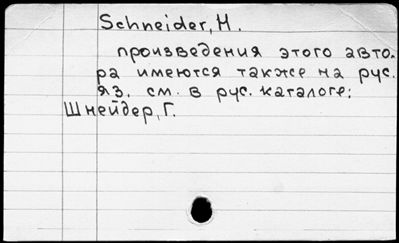 Schneider, H.
произведения этого авто-
ра имеются также на рус.
яз. см. в рус. каталоге:
Шнейдер, Г.